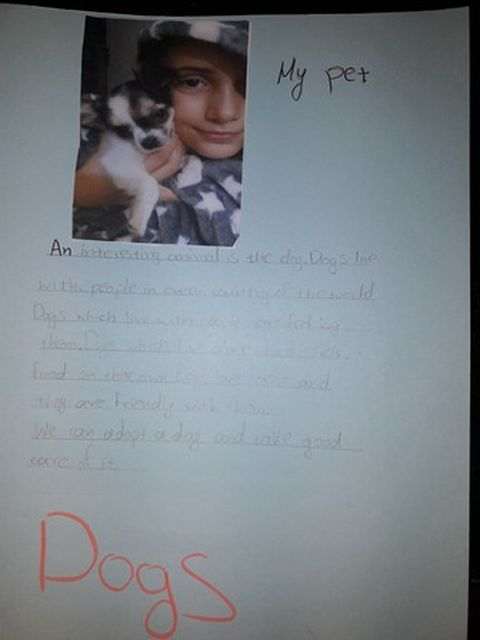 My pet
An interesting animal is the dog. Dogs live
with people in every country of the world
Dogs which live with
them. Dogs which live
food on their own
they are friendly with them.
We can adopt a dog and take good
care of it
Dogs